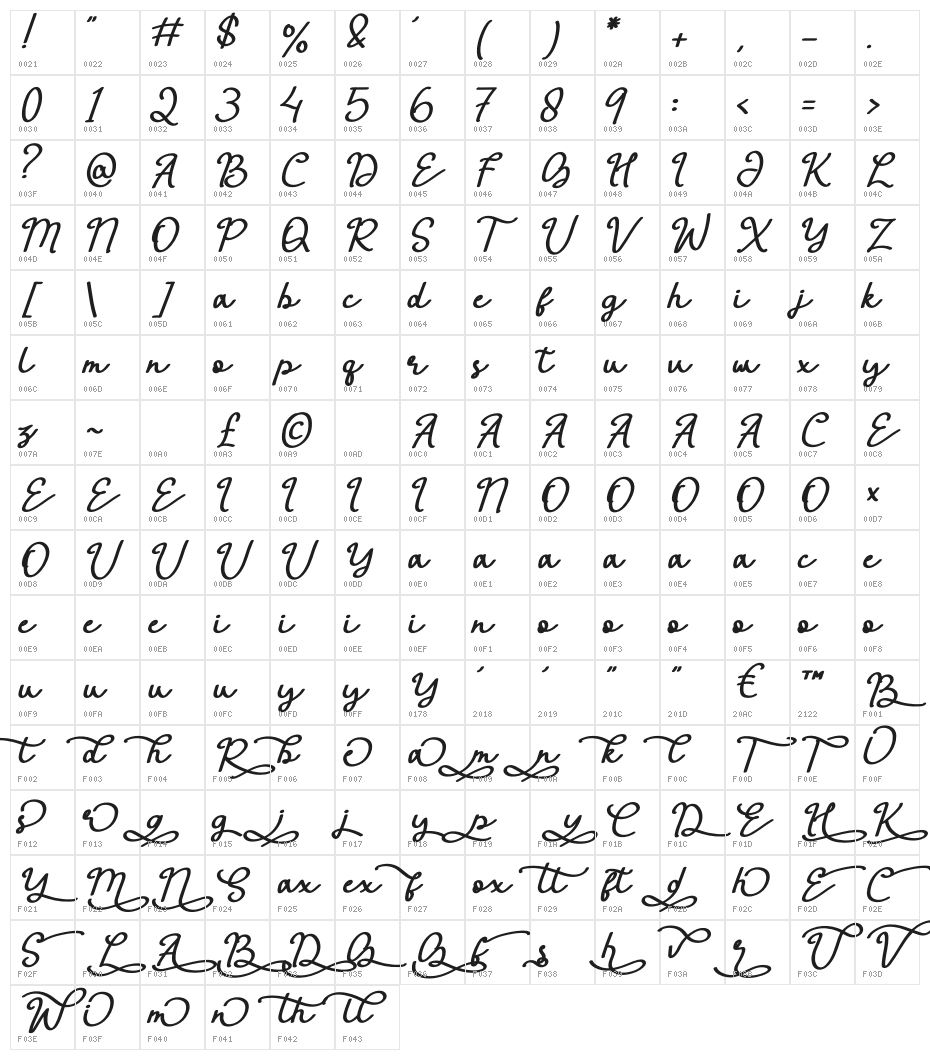 ! " # $ % & ' ( ) * + , - .
0021 0022 0023 0024 0025 0026 0027 0028 0029 002A 002B 002C 002D 002E
0 1 2 3 4 5 6 7 8 9 : < = >
0030 0031 0032 0033 0034 0035 0036 0037 0038 0039 003A 003C 003D 003E
? @ A B C D E F G H I J K L
003F 0040 0041 0042 0043 0044 0045 0046 0047 0048 0049 004A 004B 004C
M N O P Q R S T U V W X Y Z
004D 004E 004F 0050 0051 0052 0053 0054 0055 0056 0057 0058 0059 005A
[ \ ] a b c d e f g h i j k
005B 005C 005D 0061 0062 0063 0064 0065 0066 0067 0068 0069 006A 006B
l m n o p q r s t u u w x y
006C 006D 006E 006F 0070 0071 0072 0073 0074 0075 0076 0077 0078 0079
z ~ £ © A A A A A A C E
007A 007E 00A0 00A3 00A9 00AD 00C0 00C1 00C2 00C3 00C4 00C5 00C7 00C8
E E E I I I I N O O O O O x
00C9 00CA 00CB 00CC 00CD 00CE 00CF 00D1 00D2 00D3 00D4 00D5 00D6 00D7
O U U U U Y a a a a a a c e
00D8 00D9 00DA 00DB 00DC 00DD 00E0 00E1 00E2 00E3 00E4 00E5 00E7 00E8
e e e i i i i n o o o o o o
00E9 00EA 00EB 00EC 00ED 00EE 00EF 00F1 00F2 00F3 00F4 00F5 00F6 00F8
u u u u y y Y ' ' " " € ™ B
00F9 00FA 00FB 00FC 00FD 00FF 0178 2018 2019 201C 201D 20AC 2122 F001
t d h R b o a m n k l T T O
F002 F003 F004 F005 F006 F007 F008 F009 F00A F00B F00C F00D F00E F00F
s r g g j j y p y C D E H K
F012 F013 F014 F015 F016 F017 F018 F019 F01A F01B F01C F01D F01F F020
Y M N S ax ex f ox tt ft d h E C
F021 F022 F023 F024 F025 F026 F027 F028 F029 F02A F02B F02C F02D F02E
S L A B D G G f s h v r U V
F02F F030 F031 F035 F036 F037 F038 F039 F03A F03C F03D
W i m n th ll
F03E F03F F040 F041 F042 F043